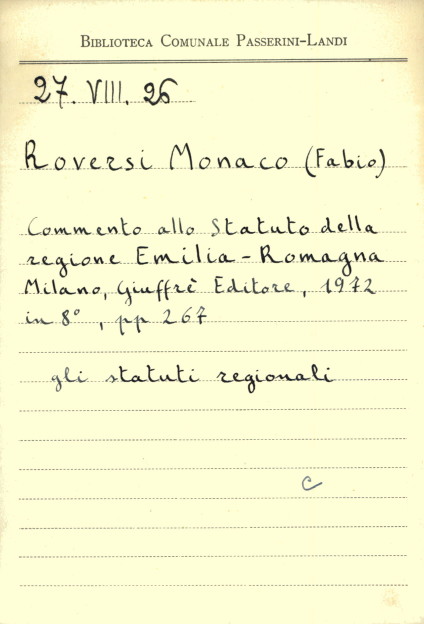 BIBLIOTECA COMUNALE PASSERINI-LANDI
27. VIII. 26
Roversi Monaco (Fabio)
Commento allo Statuto della
regione Emilia-Romagna
Milano, Giuffrè Editore, 1972
in 8° , pp 267
gli statuti regionali
C